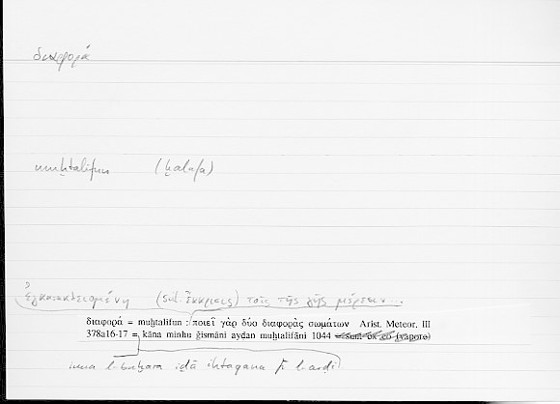 διαφορά
muḫtalifun (ḫalafa)
ἐγκατακλειομένη (scil. ἔκκρισις) τοῖς τῆς γῆς μέρεσιν...
διαφορά = muḫtalifun : ποιεῖ γὰρ δύο διαφορὰς σωμάτων Arist. Meteor. III
378a16-17 = kāna minhu ǧismāni ayḍan muḫtalifāni 1044 (vapore)
l-buḫāra iḏā iḥtaqana fī l-arḍi